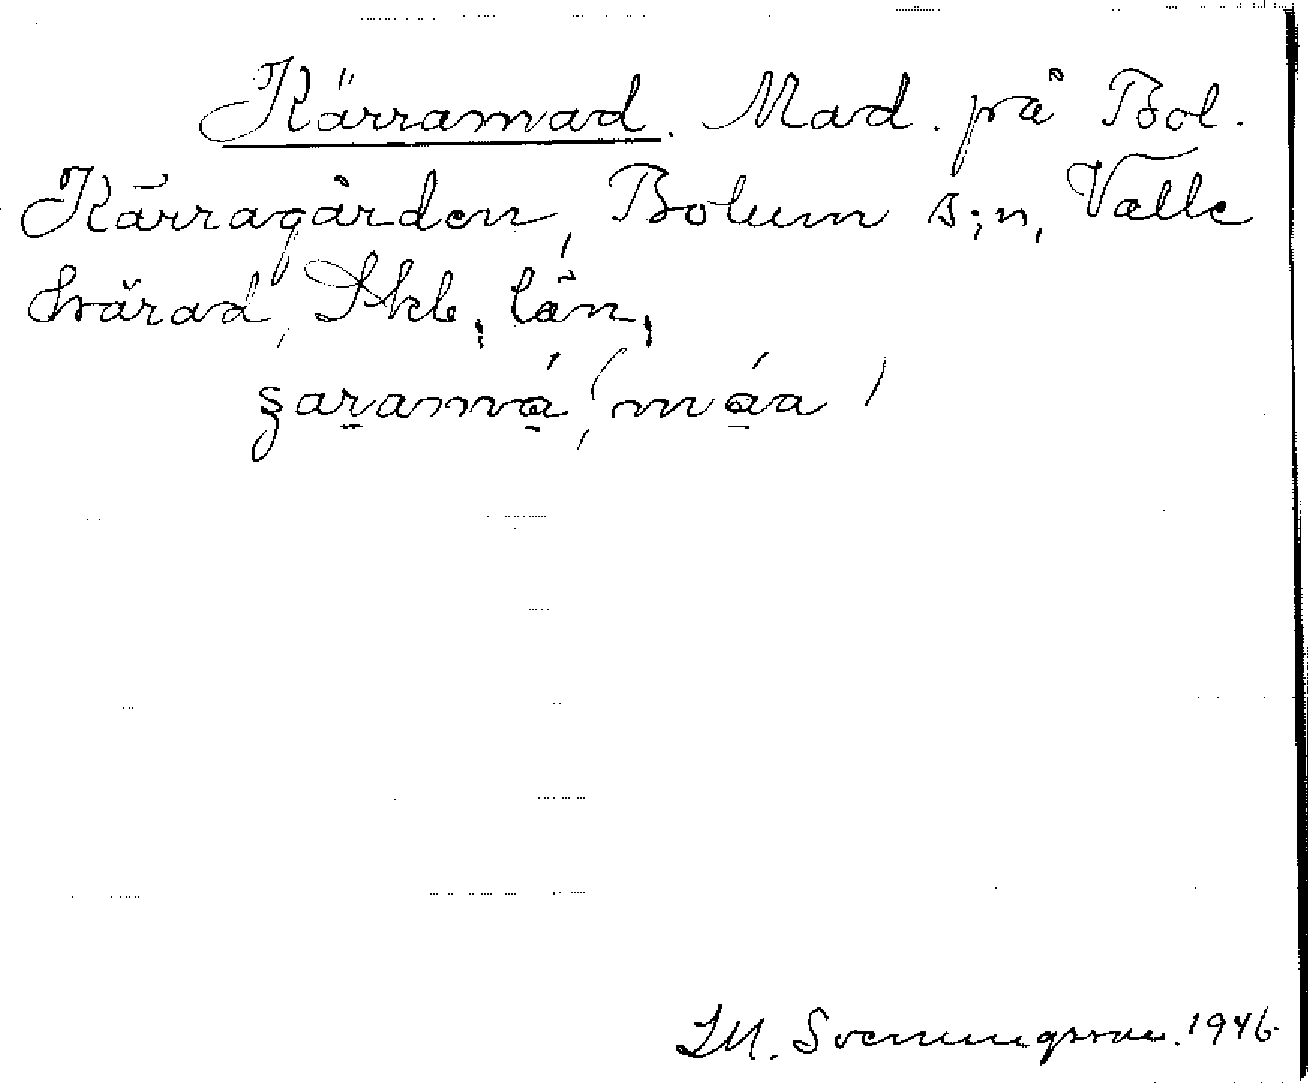 Kärramad. Mad. på Bol.
Kärragården, Bolum s:n, Valle
härad, Skb. län,
ʒaramá, (máa)
J.M. Svenningsson. 1946